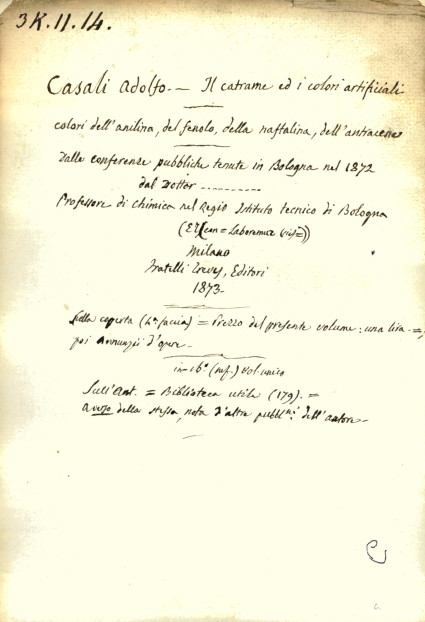 3K.11.14.
Casali Adolfo. — Il catrame ed i colori artificiali
colori dell'anilina, del fenolo, della naftalina, dell'antracene
Dalle conferenze pubbliche tenute in Bologna nel 1872
dal Dottor ...........
Professore di Chimica nel Regio Istituto tecnico di Bologna
(con = Laboremus
Milano
Fratelli Treves, Editori
1873.
Sulla coperta (4ª faccia) = Prezzo del presente volume: una lira. =,
poi Annunzii d'opere.
in-16° (inf.) Vol. unico
Sull'Ant. = Biblioteca utile (179). =
a verso della stessa, nota d'altre pubbl.ni dell'autore.
C